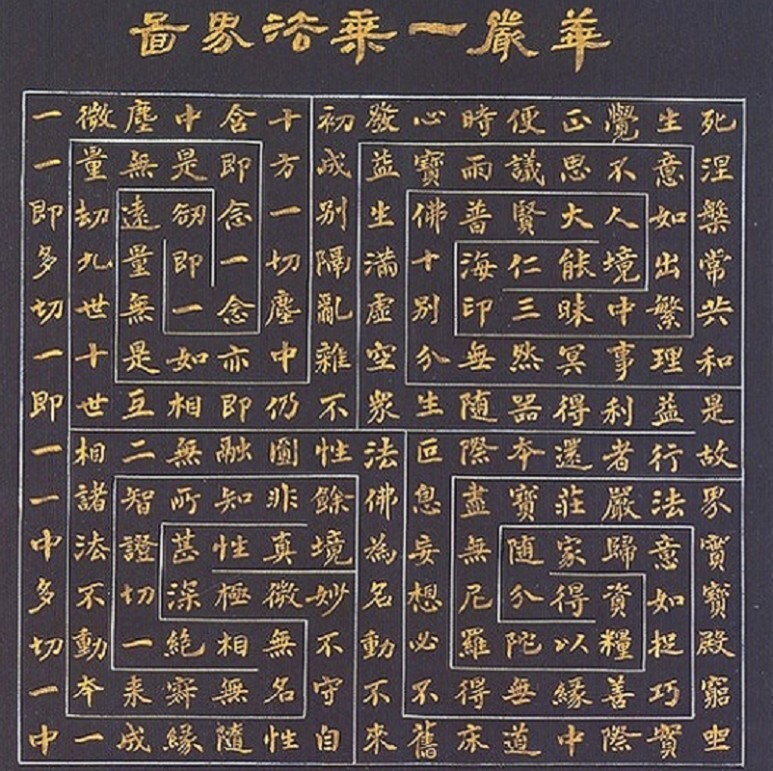 華嚴一乘法界啚
一微塵中含十初發心時便正覺生死
一量無是即方成益寶雨議思不意涅
即劫遠劫念一別生佛普賢大人如槃
多九量即一切隔滿十海仁能境出常
切世無一念塵亂虛別印三昧中繁共
一十是如亦中雜空分無然冥事理和
即世互相即仍不眾生隨器得利益是
一相二無融圓性法叵際本還者行故
一諸智所知非餘佛息盡寶莊嚴法界
中法證甚性真境為妄無隨家歸意實
多不切深極微妙名想尼分得資如寶
切動一絕相無不動必羅陀以糧捉殿
一本來寂無名守不不得無緣善巧窮
中一成緣隨性自來舊床道中際實坐